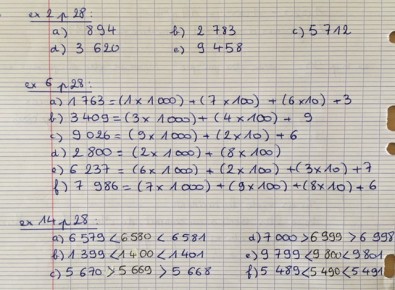 ex 2 p 28 :
a) 894 b) 2 783 c) 5 712
d) 3 620 e) 9 458
ex 6 p 28 :
a) 1 763 = (1 x 1 000) + (7 x 100) + (6 x 10) + 3
b) 3 409 = (3 x 1 000) + (4 x 100) + 9
c) 9 026 = (9 x 1 000) + (2 x 10) + 6
d) 2 800 = (2 x 1 000) + (8 x 100)
e) 6 237 = (6 x 1 000) + (2 x 100) + (3 x 10) + 7
f) 7 986 = (7 x 1 000) + (9 x 100) + (8 x 10) + 6
ex 14 p 28 :
a) 6 579 < 6 580 < 6 581 d) 7 000 > 6 999 > 6 998
b) 1 399 < 1 400 < 1 401 e) 9 799 < 9 800 < 9 801
c) 5 670 > 5 669 > 5 668 f) 5 489 < 5 490 < 5 491